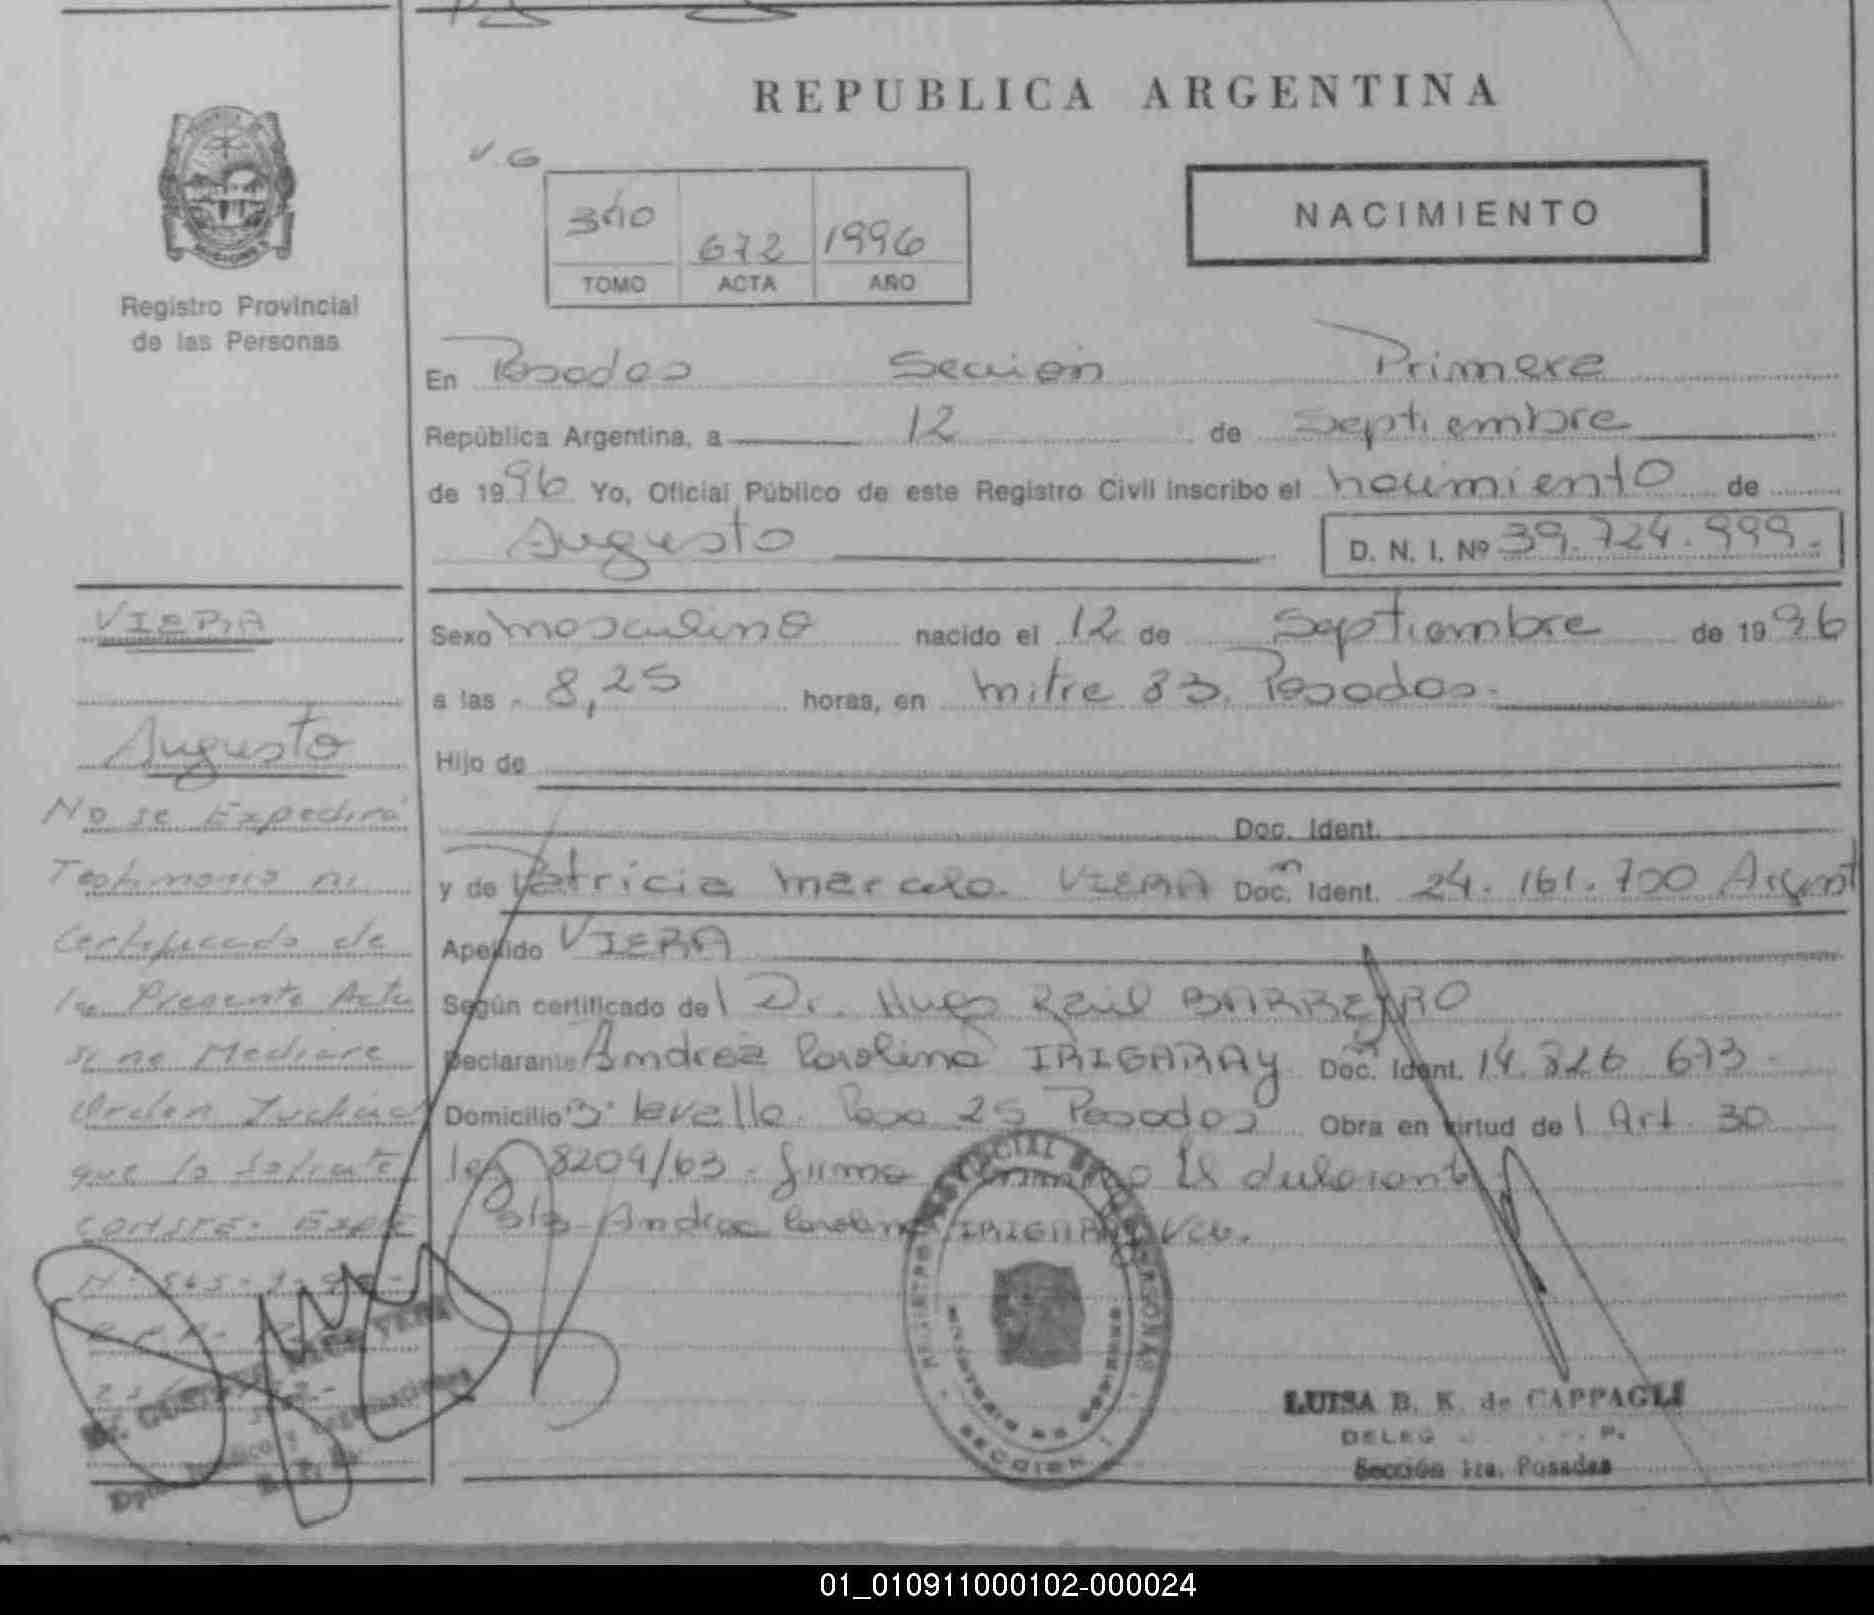 REPUBLICA ARGENTINA
V.G
340 672 1996
TOMO ACTA AÑO
NACIMIENTO
Registro Provincial
de las Personas
En Posadas Sección Primera
República Argentina, a 12 de Septiembre
de 1996 Yo, Oficial Público de este Registro Civil inscribo el nacimiento de
Augusto D. N. I. Nº 39.724.999.
Sexo masculino nacido el 12 de Septiembre de 1996
a las 8,25 horas, en mitre 83. Posadas.
Hijo de
Doc. Ident.
y de Patricia Marcela VIERA Doc. Ident. 24.161.700 Argent
Apellido VIERA
Según certificado del Dr. Hugo Raúl BARREYRO
Declarante Andrea Carolina IRIGARAY Doc. Ident. 14.826.673.
Domicilio Bº Lavalle. Casa 25 Posadas Obra en virtud del Art. 30
ley 8204/63. firma el declarante
Andrea Carolina IRIGARAY
VIERA
Augusto
No se Expedirá
Testimonio ni
Certificado de
la Presente Acta
si no Mediare
Orden Judicial
que lo Solicite
CONSTE. Expte
LUISA B. K. de CAPPAGLI
Sección 1ra. Posadas
01_010911000102-000024